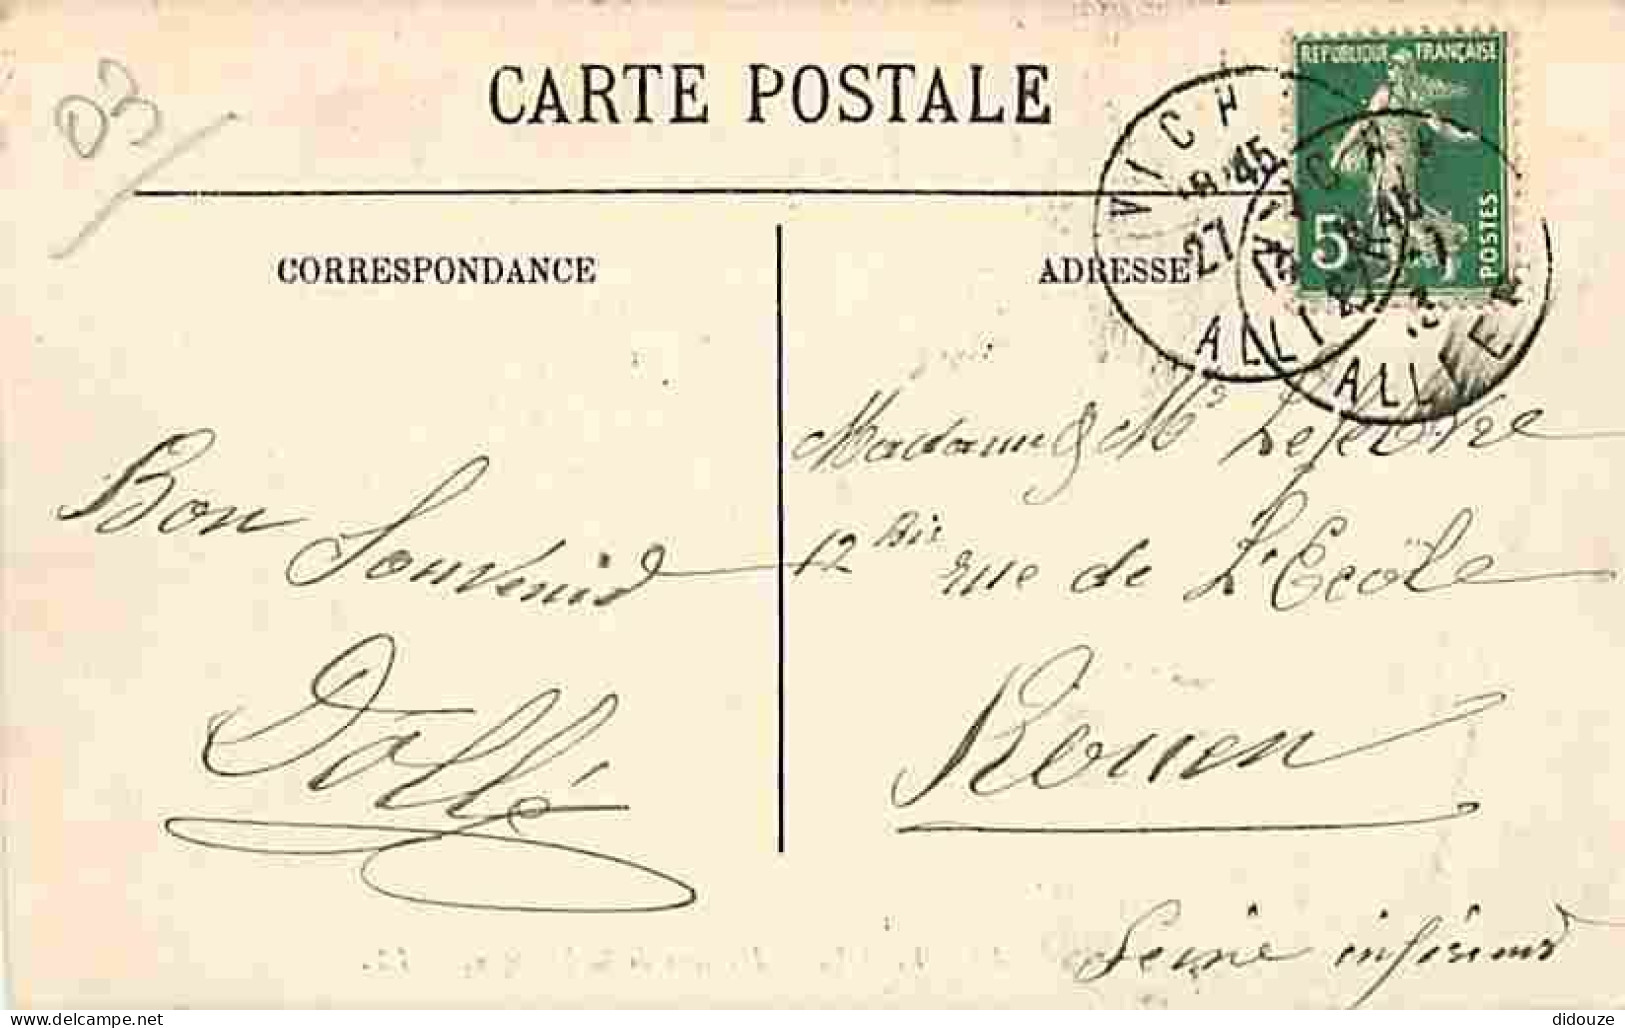 03
CARTE POSTALE
RÉPUBLIQUE FRANÇAISE
5
POSTES
VICHY
18'45
27
ALLIER
VICHY
ALLIER
CORRESPONDANCE
ADRESSE
Bon
Souvenir
Dollé
Madame & Mr Lefebvre
12 Bis rue de L'Ecole
Rouen
Seine inférieure
delcampe.net
didouze